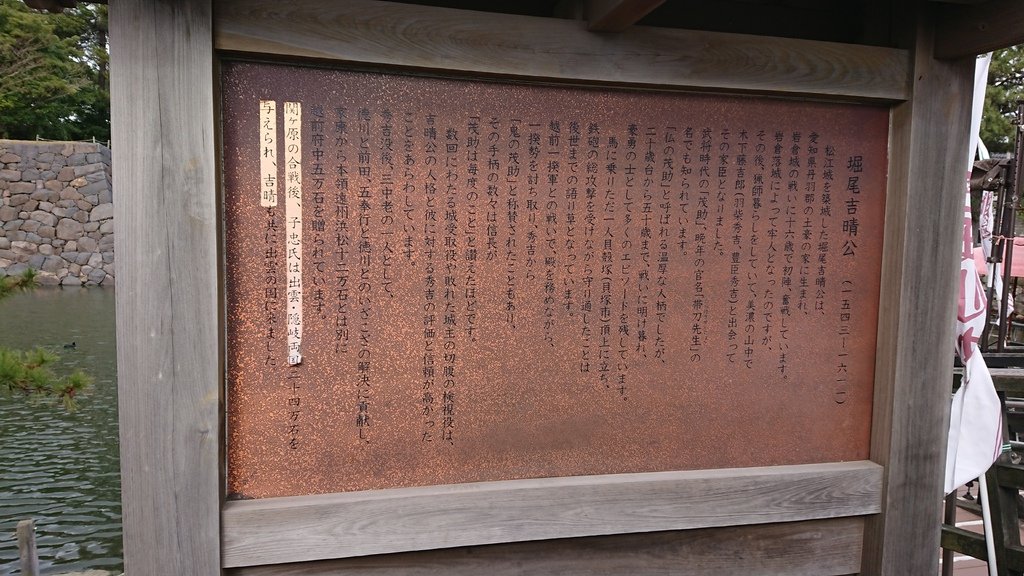 堀尾吉晴公 (一五四三―一六一一)
松江城を築城した堀尾吉晴公は、
愛知県丹羽郡の土豪の家に生まれ、
岩倉城の戦いに十六歳で初陣、奮戦しています。
岩倉落城によって牢人となったのですが、
その後、猟師暮らしをしていて、美濃の山中で
木下藤吉郎(羽柴秀吉、豊臣秀吉)と出会って
その家臣となりました。
武将時代の「茂助」、晩年の官名「帯刀先生」の
名でも知られています。
「仏の茂助」と呼ばれる温厚な人柄でしたが、
二十歳台から五十歳まで、戦いに明け暮れ、
豪勇の士として多くのエピソードを残しています。
馬に乗りただ一人貝殻塚(貝塚市)頂上に立ち、
鉄砲の総攻撃を受けながら守り通したことは
後世までの語り草となっています。
越前一揆軍との戦いで、殿を務めながら、
一揆勢を討ち取り、秀吉から
「鬼の茂助」と称賛されたこともあり、
その手柄の数々は信長が
「茂助は毎度のこと」と讃えたほどです。
数回にわたる城受取役や敗れた城主の切腹の検視役は、
吉晴公の人格と彼に対する秀吉の評価と信頼が高かった
ことをあらわしています。
秀吉没後、三中老の一人として、
徳川と前田、五奉行と徳川とのいざこざの解決に貢献し、
家康から本領遠州浜松十二万石とは別に
越前府中五万石を贈られています。
関ヶ原の合戦後、子忠氏は出雲・隠岐両国二十四万石を
与えられ、吉晴も共に出雲の国に来ました